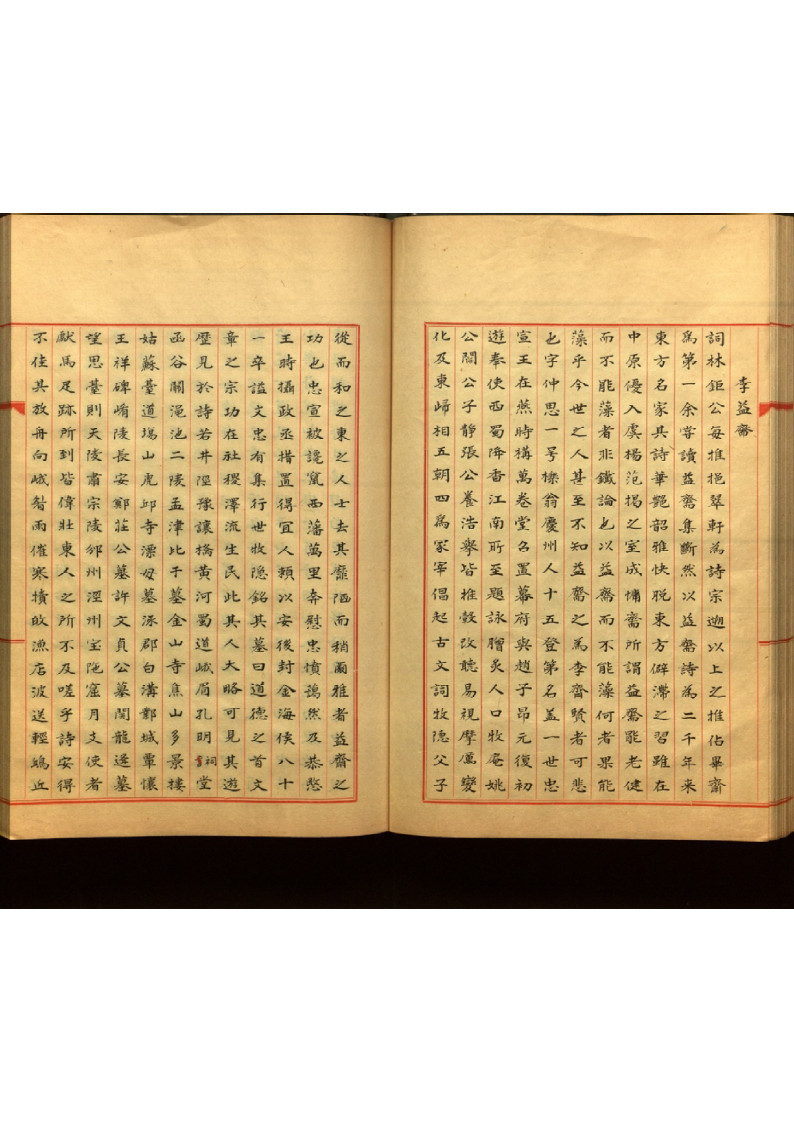 李益齋
詞林鉅公每推挹翠軒為詩宗邇以上之推佔畢齋
為第一余嘗讀益齋集斷然以益齋詩為二千年來
東方名家其詩華艶韶雅快脫東方僻滯之習雖在
中原優入虞楊范揭之室成慵齋所謂益齋能老健
而不能藻者非鐵論也以益齋而不能藻何者果能
藻乎今世之人甚至不知益齋之為李齊賢者可悲
也字仲思一号櫟翁慶州人十五登第名盖一世忠
宣王在燕時構萬卷堂名置幕府與趙子昂元復初
遊奉使西蜀降香江南所至題詠膾炙人口牧庵姚
公閻公子靜張公養浩舉皆推轂改聽易視摩厲變
化及東歸相五朝四為冢宰倡起古文詞牧隐父子
從而和之東之人士去其靡陋而稍爾雅者益齋之
功也忠宣被讒竄西藩萬里奔慰忠憤藹然及恭愍
王時攝政丞措置得宜人頼以安後封金海侯八十
一卒謚文忠有集行世牧隐銘其墓曰道德之首文
章之宗功在社稷澤流生民此其人大略可見其遊
歷見於詩若井陘豫讓橋黃河蜀道峨眉孔明祠堂
函谷關澠池二陵孟津比干墓金山寺焦山多景樓
姑蘇臺道場山虎邱寺漂母墓涿郡白溝鄴城覃懷
王祥碑崤陵長安鄭莊公墓許文貞公墓関龍逄墓
望思臺則天陵肅宗陵邠州涇州宝陁窟月支使者
獻馬足跡所到皆偉壯東人之所不及嗟乎詩安得
不佳其放舟向峨眉雨催寒犢敀漁店波送輕鷗丘